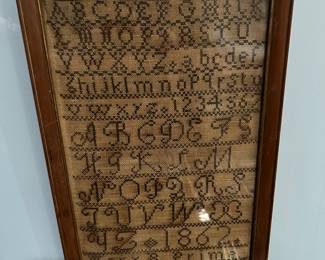 A B C D E F G H I J K L
M N O P Q R S T U
V W X Y Z. a b c d e f
g h i j k l m n o p q r s t u
v w x y z. 1 2 3 4 5 6 7
A B C D E F G
H I J K L M
N O P Q R S
T U V W X
Y Z 1862